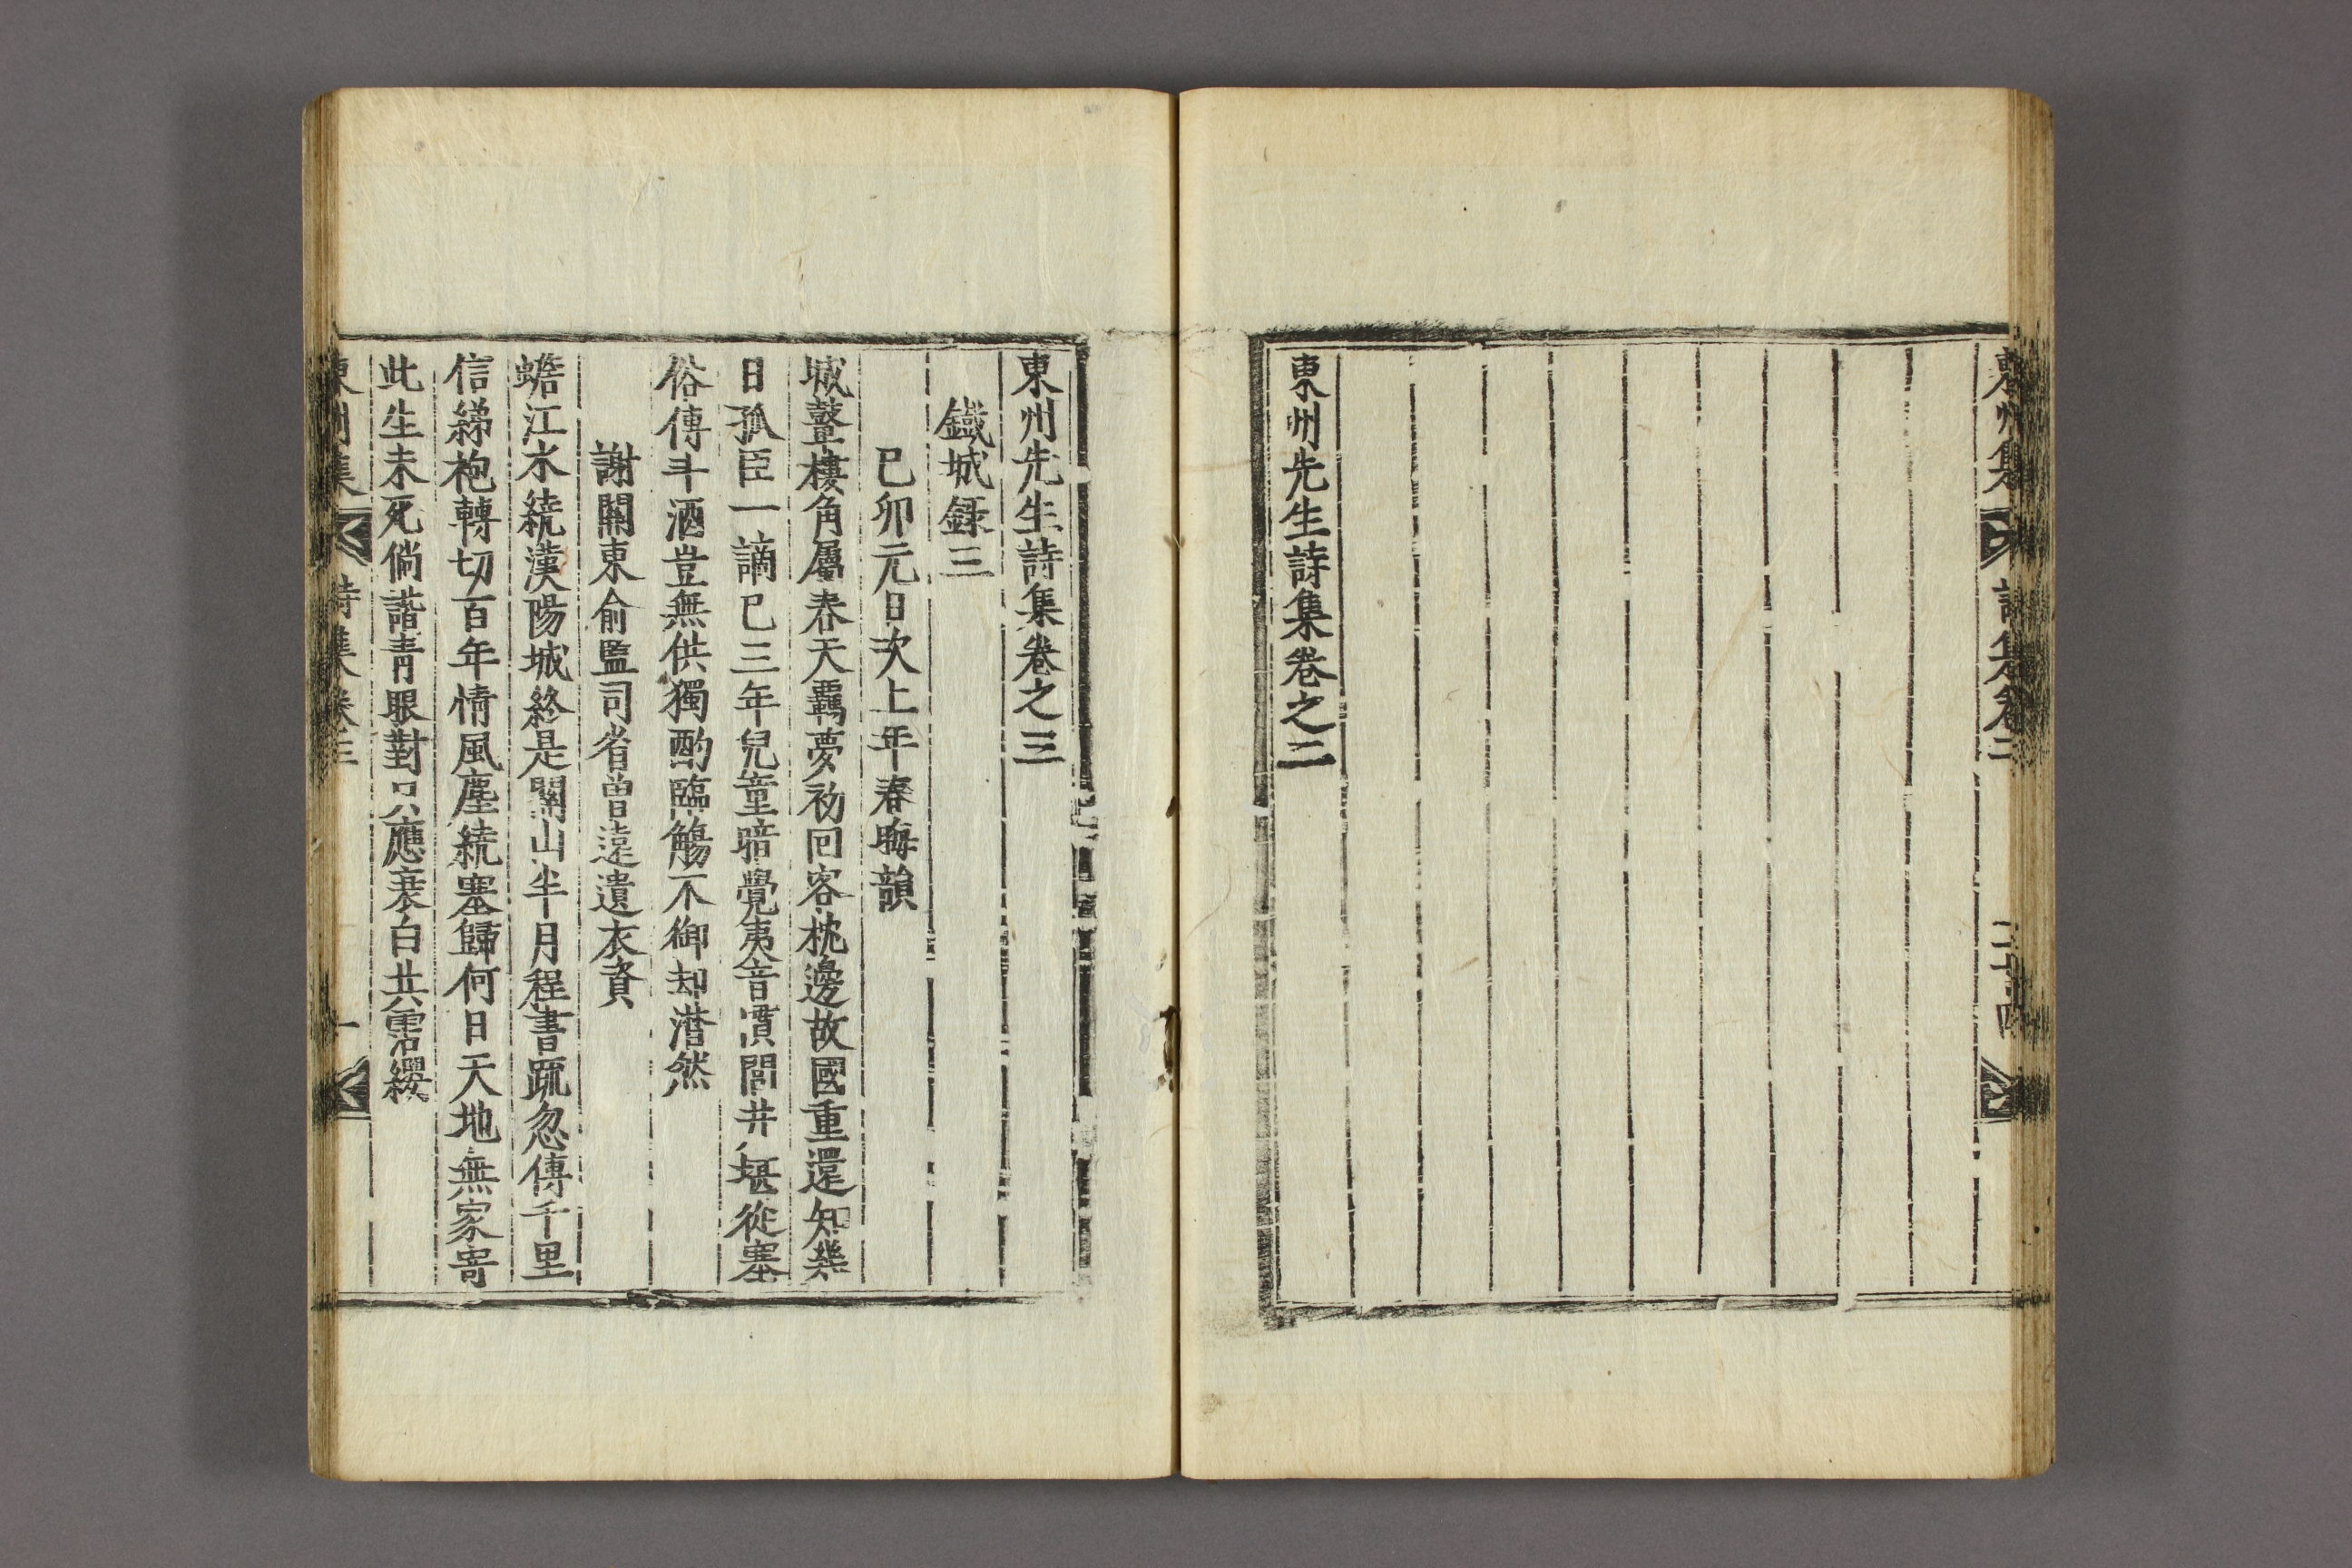 東州集 詩集卷二 二十四
東州先生詩集卷之二
東州先生詩集卷之三
鐵城錄三
己卯元日次上年春晦韻
城鼛樓角屬春天羈夢初回客枕邊故國重還知幾
日孤臣一謫已三年兒童暗覺夷音慣閭井堪從塞
俗傳斗酒豈無供獨酌臨觴不御却潸然
謝關東俞監司省曾遠遺衣資
蟾江水繞漢陽城終是關山半月程書䟽忽傳千里
信綈袍轉切百年情風塵繞塞歸何日天地無家寄
此生未死倘諧靑眼對只應衰白共霑纓
東州集 詩集卷三 一